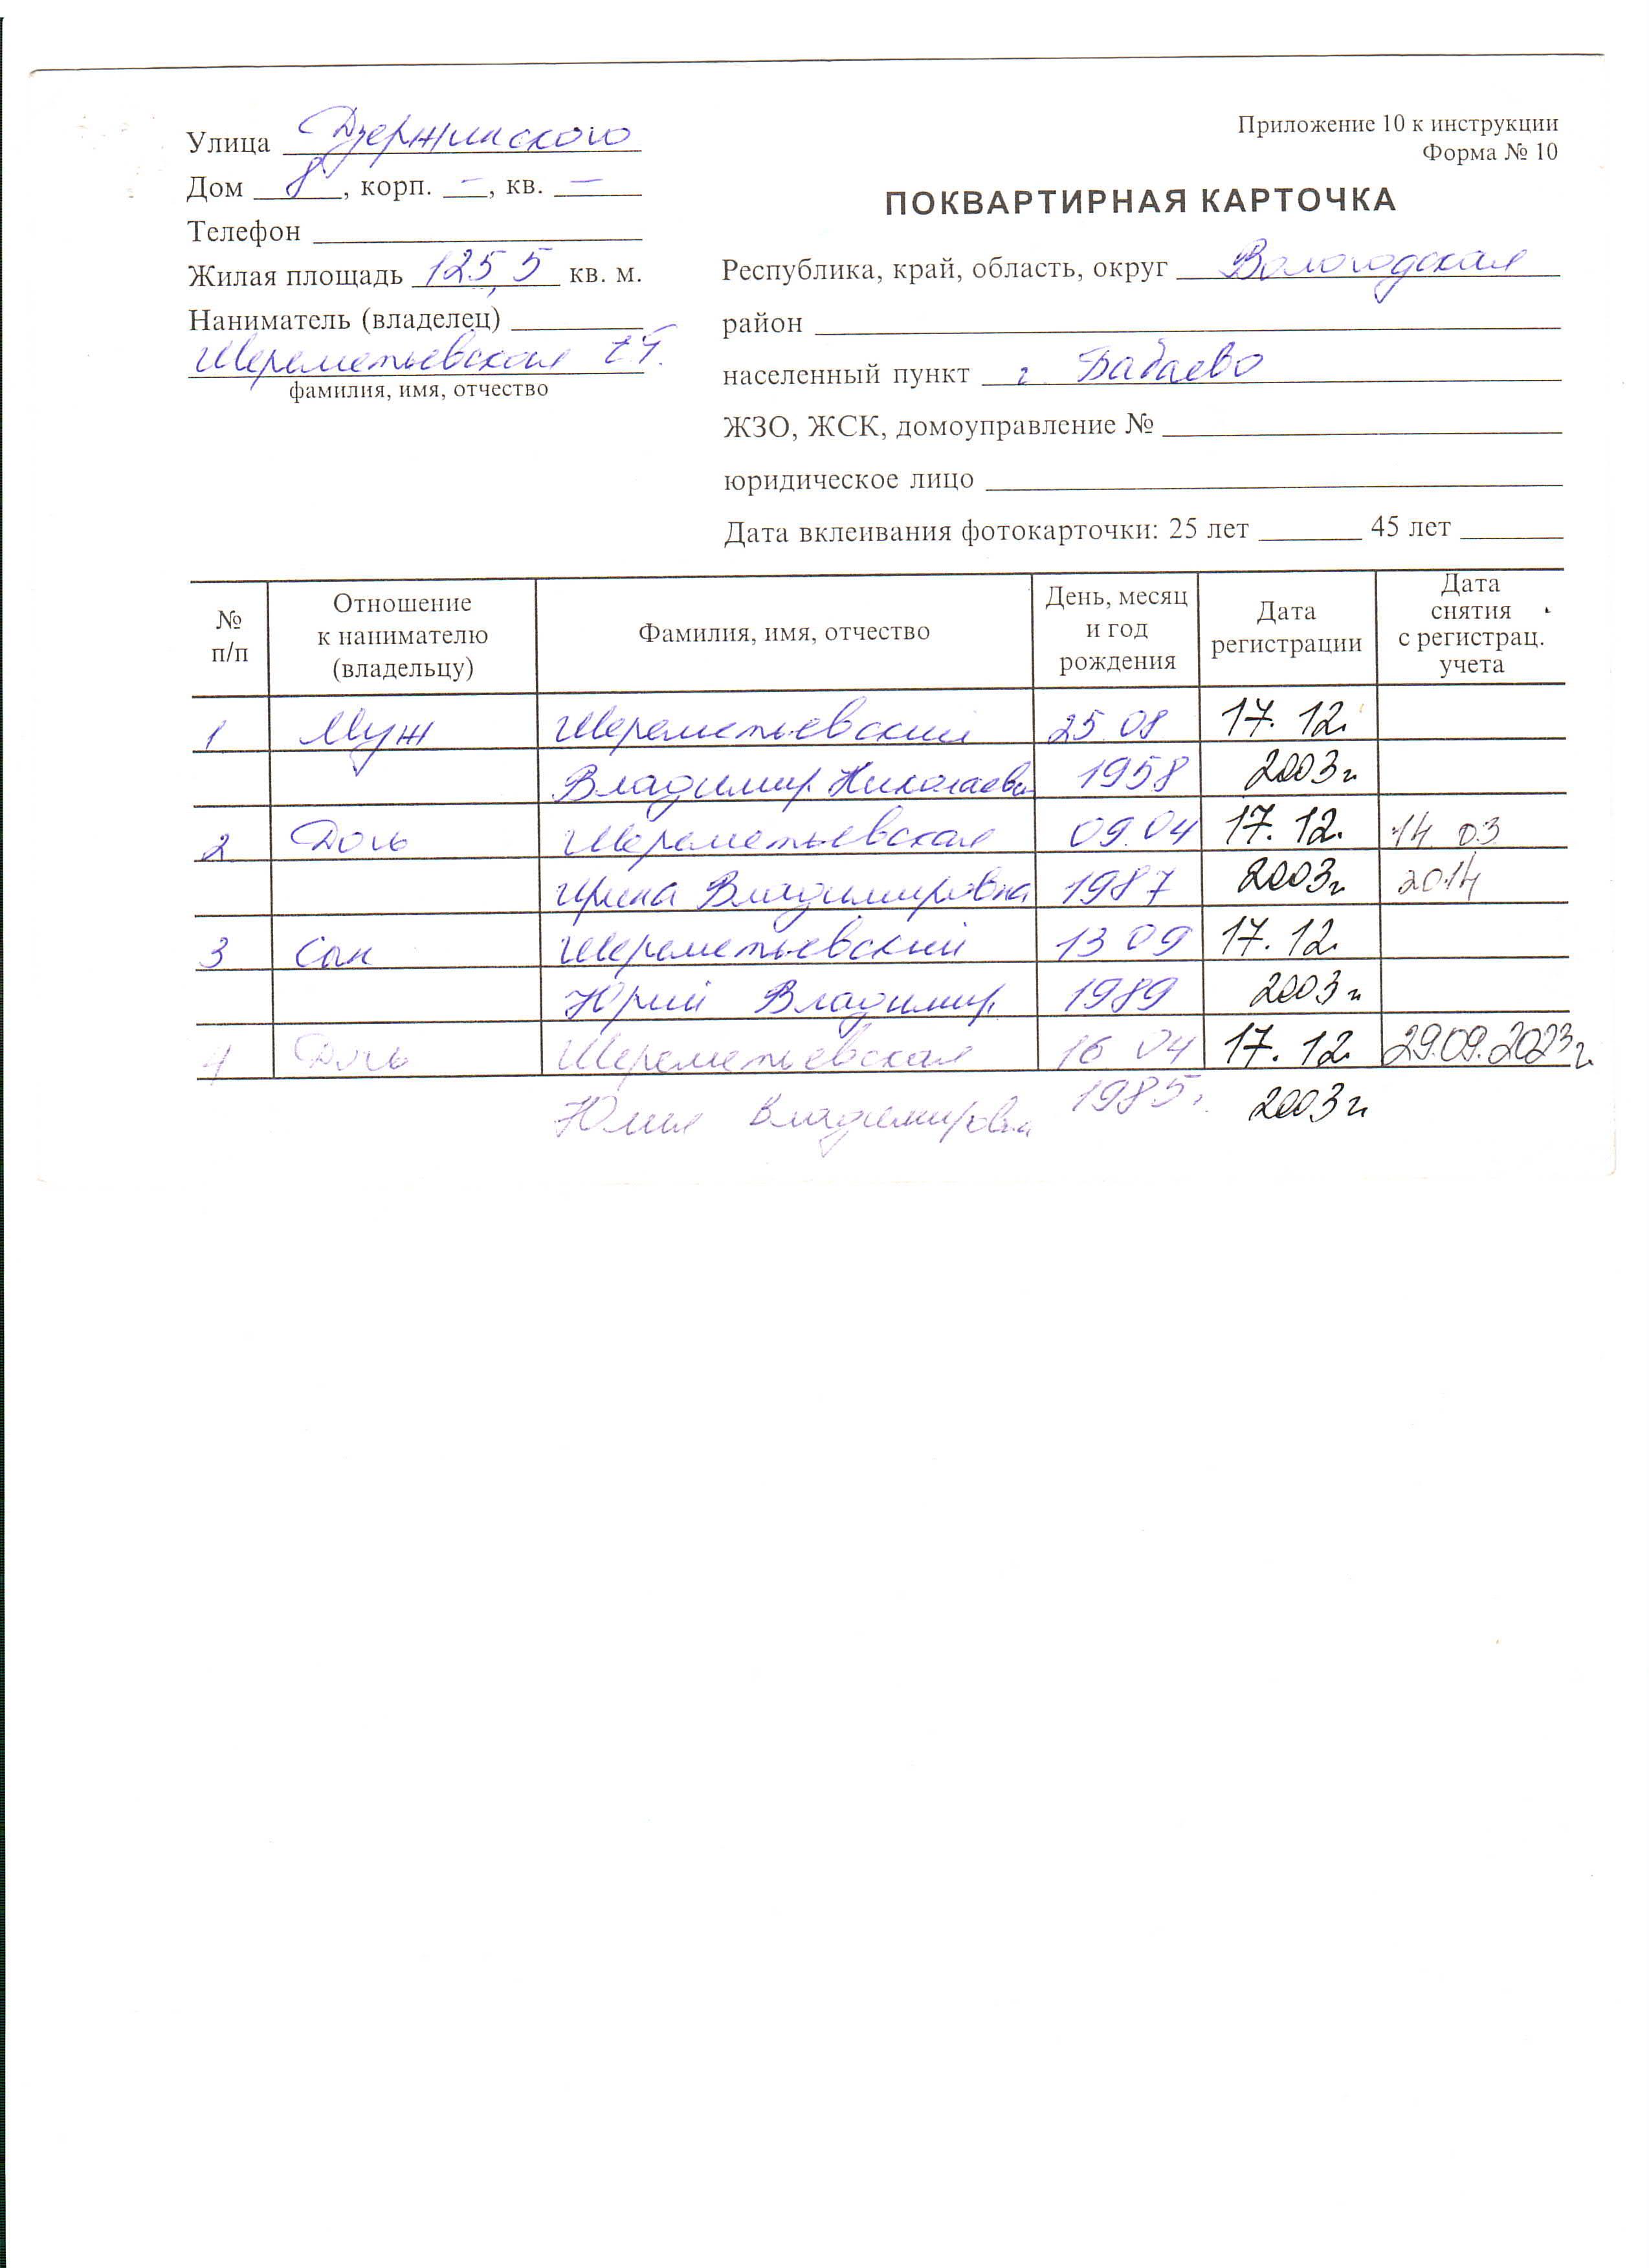 Улица Дзержинского
Дом 8, корп. –, кв. –
Телефон
Жилая площадь 125,5 кв. м.
Наниматель (владелец)
Шереметьевская
фамилия, имя, отчество
Приложение 10 к инструкции
Форма № 10
ПОКВАРТИРНАЯ КАРТОЧКА
Республика, край, область, округ Вологодская
район
населенный пункт г. Бабаево
ЖЗО, ЖСК, домоуправление №
юридическое лицо
Дата вклеивания фотокарточки: 25 лет 45 лет
№ п/п Отношение к нанимателю (владельцу) Фамилия, имя, отчество День, месяц и год рождения Дата регистрации Дата снятия с регистрац. учета
1 Муж Шереметьевский 25 08 17.12.
Владимир Николаевич 1958 2003г
2 Дочь Шереметьевская 09.04 17.12. 14 03
Ирина Владимировна 1987 2003г 2014
3 Сын Шереметьевский 13 09 17.12.
Юрий Владимир 1989 2003г
4 Дочь Шереметьевская 16 04 17.12 29.09.2023г
Юлия Владимировна 1985г. 2003г